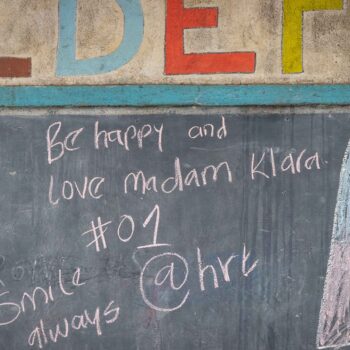 LDEF
Be happy and
love madam Klara.
#01
Smile @hrt
always